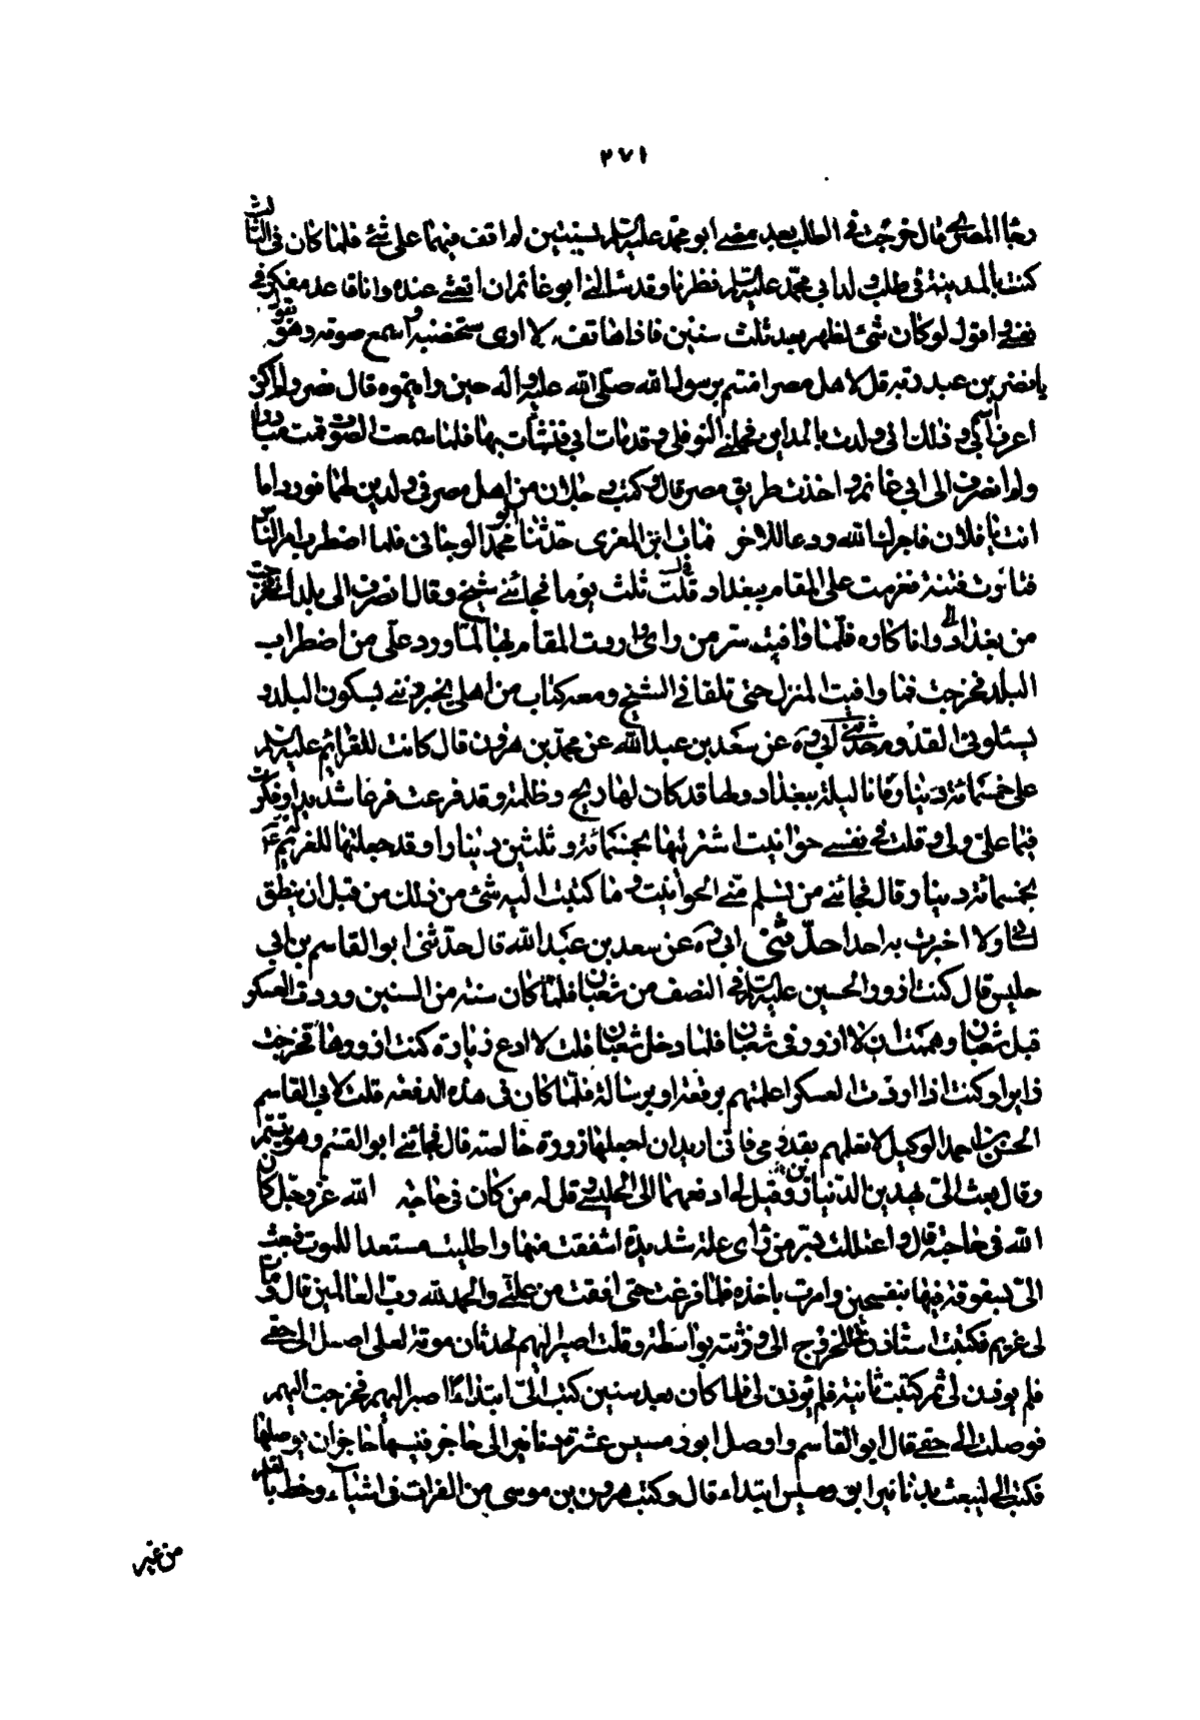 ٢٧١
رجا المصرى قال خرجت فى الطلب بعد مضى ابو محمد عليه السلم بسنتين لم اقف فيهما على شئ فلما كان فى الثالث
كنت بالمدينة فى طلب ولد ابى محمد عليه السلم وقد سألنى ابو غانم ان اتعشى عنده وانا قاعد مفكر فى
نفسى اقول لو كان شئ لظهر بعد ثلث سنين فاذا هاتف اسمع صوته وهو يقول
يا نصر بن عبد ربه قل لاهل مصر امنتم برسول الله صلى الله عليه واله حين رايتموه قال نصر ولم اكن
اعرف اسم ابى وذلك انى ولدت بالمداين فحملنى النوفلى وقد مات ابى فنشات بها فلما سمعت الصوت قمت مبادرا
ولم انصرف الى ابى غانم واخذت طريق مصر قال وكتب رجلان من اهل مصر فى ولدين لهما فورد اما
انت يا فلان فاجرك الله ودعا للاخر فمات ابن المعزى حدثنا ابو محمد الوجنائى فلما اضطرب امر الناس
فثارت فتنة فعزمت على المقام ببغداد ثلث يوما فجائنى شيخ وقال انصرف الى بلدك فخرجت
من بغداد وانا كاره فلما وافيت سر من راى واردت المقام بها لما ورد على من اضطراب
البلد فخرجت فما وافيت المنزل حتى تلقانى الشيخ ومعه كتاب من اهلى يخبروننى بسكون البلد و
يسئلونى القدوم حدثنى ابى ره عن سعد بن عبد الله عن محمد بن هرون قال كانت للغريم عليه السلم
على خمسمائة دينار فانا ليلة ببغداد ولها قد كان لها ريح وظلمة وقد فزعت فزعا شديدا وفكرت
فيما على ولى وقلت فى نفسى حوانيت اشتريتها بخمسمائة وثلثين دينارا وقد جعلتها للغريم ع
بخمسمائة دينار وقال فجائنى من تسلم منى الحوانيت وما كتبت اليه شئ من ذلك من قبل ان ينطق
لسانى ولا اخبرت به احدا حدثنى ابى ره عن سعد بن عبد الله قال حدثنى ابو القاسم بن ابى
حليس قال كنت ازور الحسين عليه السلم فى النصف من شعبان فلما كان سنة من السنين وردت العسكر
قبل شعبان وهممت ان لا ازور فى شعبان فلما دخل شعبان قلت لا ادع زيارة كنت ازورها فخرجت
زايرا وكنت اذا اوردت العسكر اعلمتهم برقعة او برسالة فلما كان فى هذه الدفعة قلت لابى القاسم
الحسن بن احمد الوكيل لا تعلمهم بقدومى فانى اريد ان اجعلها زورة خالصة قال فجائنى ابو القسم وهو يتبسم
وقال بعث الى بهذين الدينارين وقيل لى ادفعهما الى الحليسى وقل له من كان فى حاجة الله عز وجل كان
الله فى حاجته قال واعتللت بسر من راى علة شديدة اشفقت منها واطليت مستعدا للموت فبعث
الى بستوقة فيها بنفسجين وامرت باخذه فلما فرغت حتى افقت من علتى والحمد لله رب العالمين قال ومات
لى غريم فكتبت استاذن فى الخروج الى ورثته بواسط وقلت اصير اليهم لحدثان موته لعلى اصل الى حقى
فلم يوذن لى ثم كتبت ثانية فلم يوذن لى فلما كان بعد سنين كتب الى ابتداءا صر اليهم فخرجت اليهم
فوصلت الى حقى قال ابو القاسم واوصل ابو رميس عشرة دنانير الى حاجز فنسيها حاجز ان يوصلها
فكتب اليه لتبعث بدنانير ابو رميس ابتداء قال وكتب هرون بن موسى بن الفرات فى اشياء وخط بالقلم
من غير